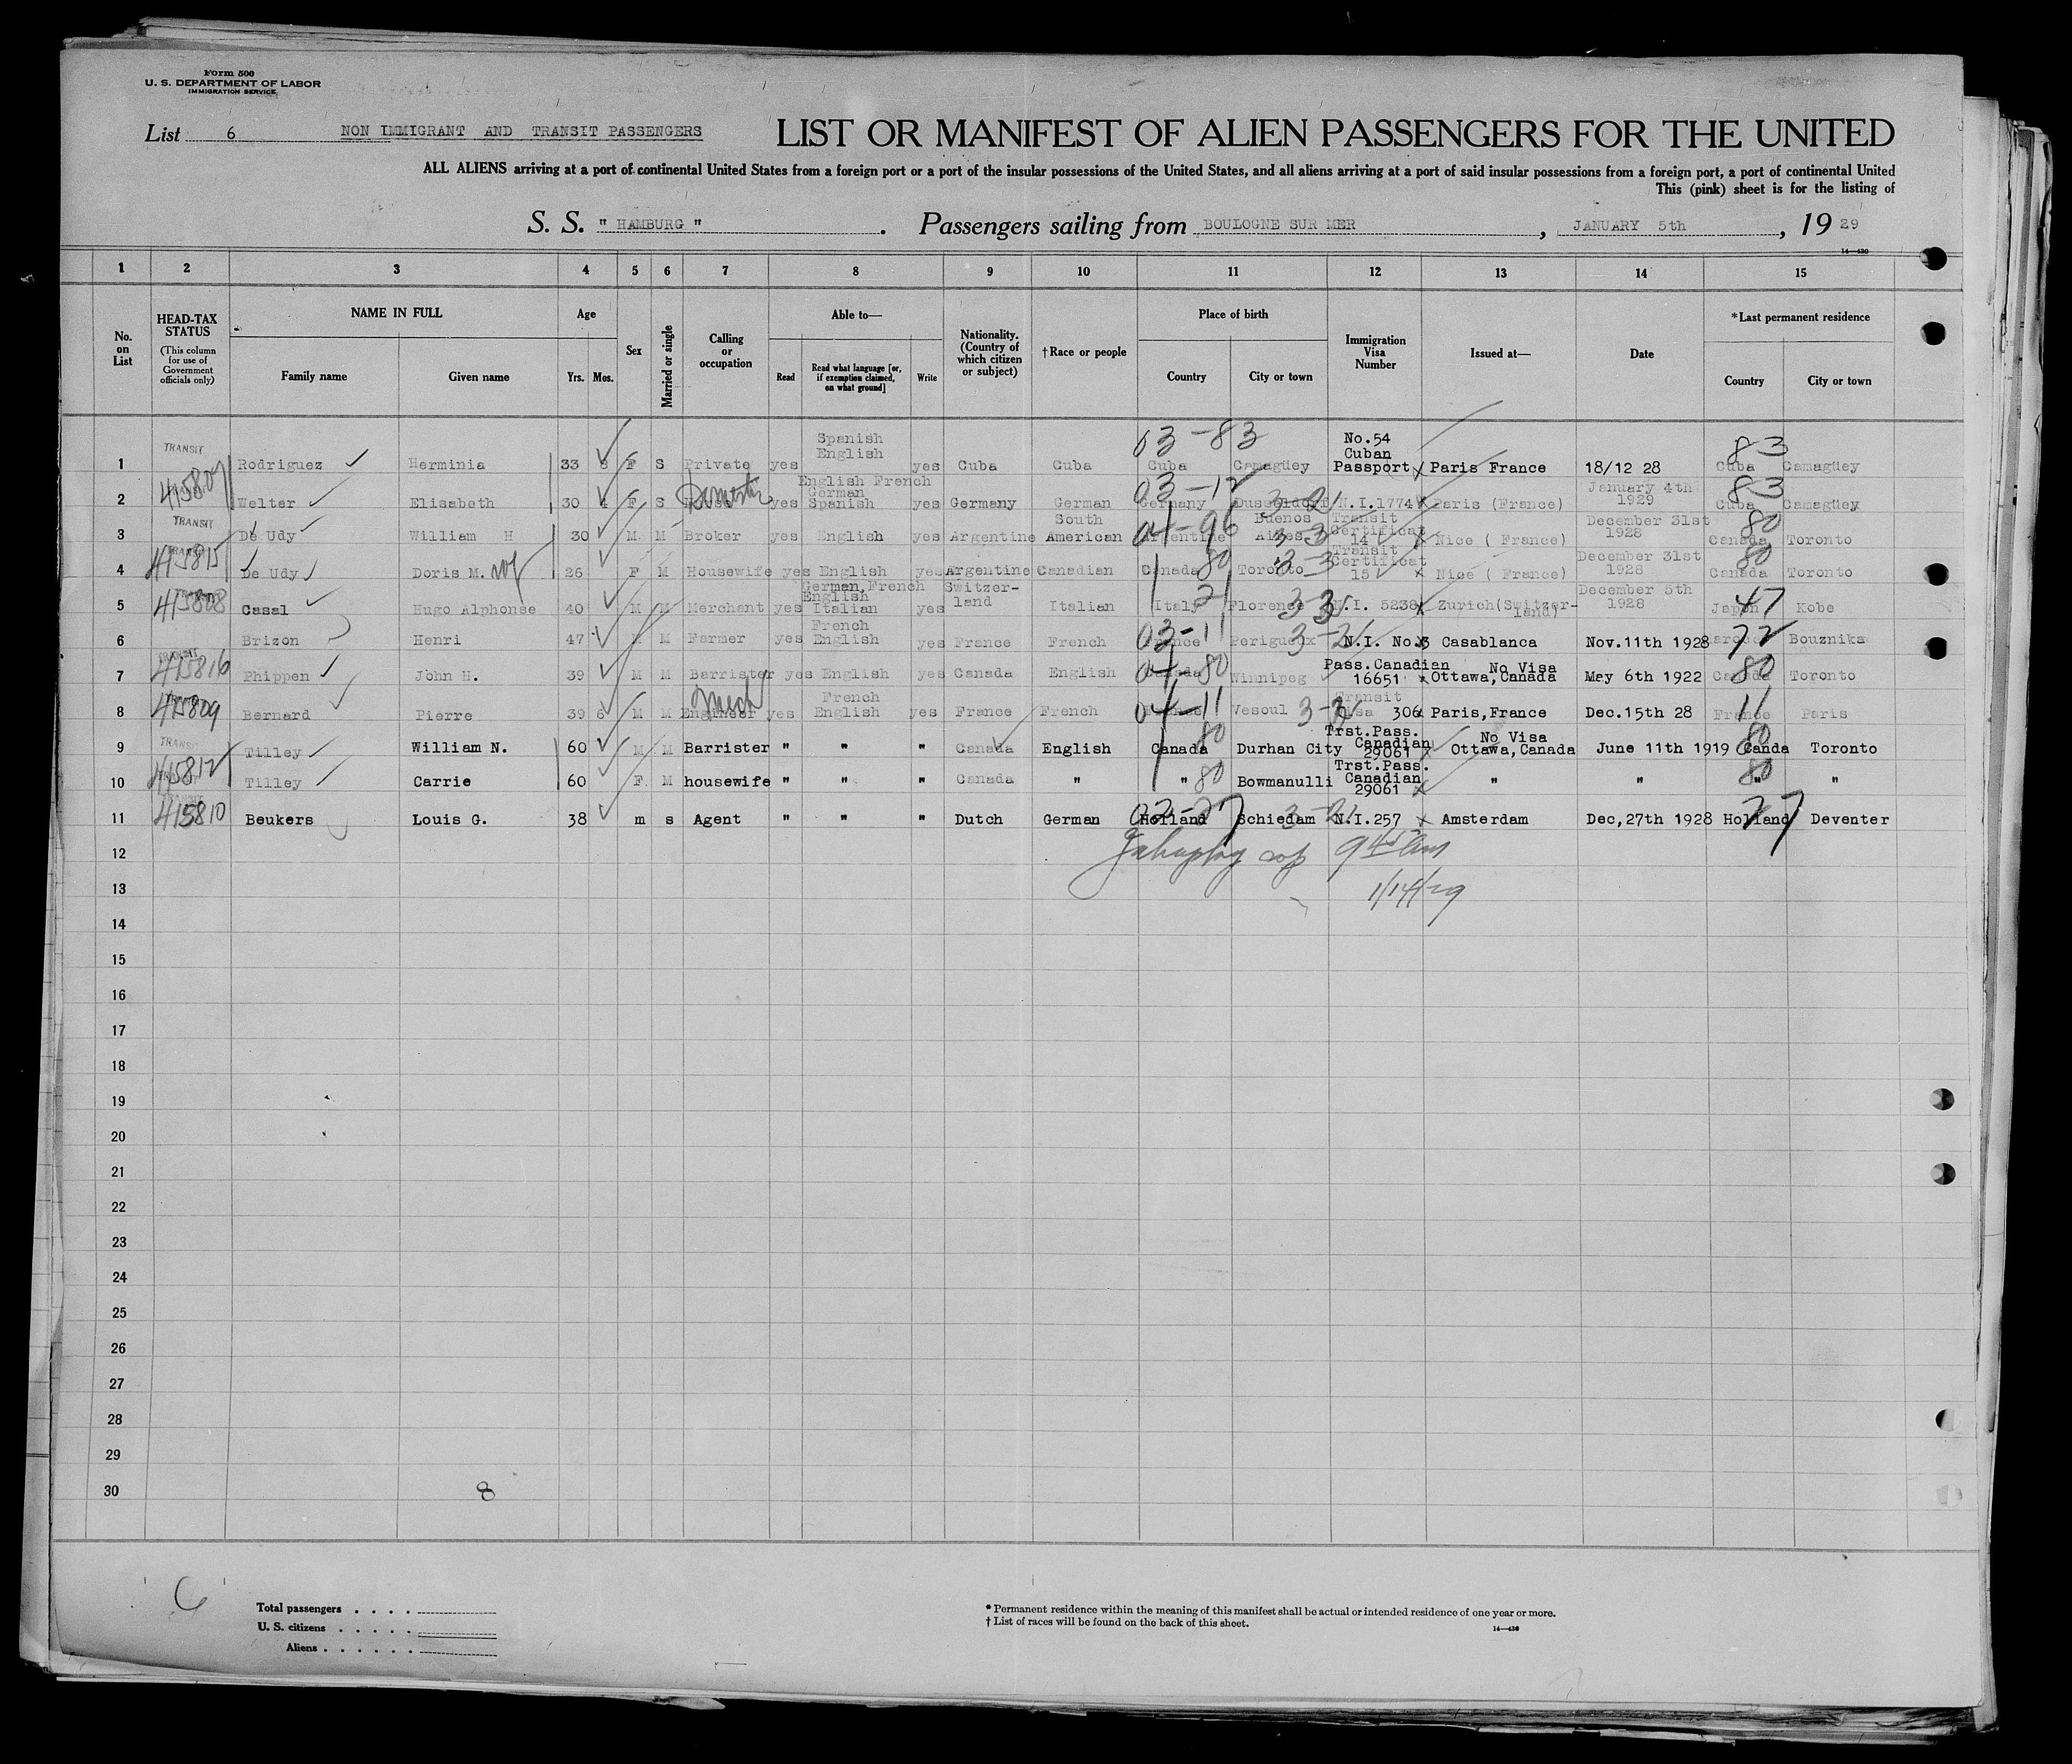 Form 500
U. S. DEPARTMENT OF LABOR
IMMIGRATION SERVICE
List 6 NON IMMIGRANT AND TRANSIT PASSENGERS LIST OR MANIFEST OF ALIEN PASSENGERS FOR THE UNITED
ALL ALIENS arriving at a port of continental United States from a foreign port or a port of the insular possessions of the United States, and all aliens arriving at a port of said insular possessions from a foreign port, a port of continental United
This (pink) sheet is for the listing of
S. S. " HAMBURG " . Passengers sailing from BOULOGNE SUR MER , JANUARY 5th , 19 29
14—430
1 2 3 4 5 6 7 8 9 10 11 12 13 14 15
No. on List
HEAD-TAX STATUS (This column for use of Government officials only)
NAME IN FULL
Family name Given name
Age
Yrs. Mos.
Sex
Married or single
Calling or occupation
Able to—
Read Read what language [or, if exemption claimed, on what ground] Write
Nationality. (Country of which citizen or subject)
†Race or people
Place of birth
Country City or town
Immigration Visa Number
Issued at—
Date
*Last permanent residence
Country City or town
1 TRANSIT Rodriguez Herminia 33 8 F S Private yes Spanish English yes Cuba Cuba 03-83 Cuba Camagüey No.54 Cuban Passport Paris France 18/12 28 83 Cuba Camagüey
2 415807 Welter Elisabeth 30 4 F S Domestic yes English French German Spanish yes Germany German 03-12 Germany Dusseldorf 3-2 N.I.1774 Paris (France) January 4th 1929 83 Cuba Camagüey
3 TRANSIT De Udy William H 30 M M Broker yes English yes Argentine South American 04-96 Argentine Buenos Aires 3-3 Transit Certificat 14 Nice ( France) December 31st 1928 80 Canada Toronto
4 415815 TRANSIT De Udy Doris M. wf 26 F M Housewife yes English yes Argentine Canadian Canada 80 Toronto 3-3 Transit Certificat 15 Nice ( France) December 31st 1928 80 Canada Toronto
5 415808 Casal Hugo Alphonse 40 M M Merchant yes German,French English Italian yes Switzer-land Italian Italy 21 Florence 3-3 N.I. 5238 Zurich(Switzer-land) December 5th 1928 Japan 47 Kobe
6 Brizon Henri 47 M M Farmer yes French English yes France French 03-11 France Perigueux 3-2 N.I. No.3 Casablanca Nov.11th 1928 72 Maroc Bouznika
7 TRANSIT 415816 Phippen John H. 39 M M Barrister yes English yes Canada English 04-80 Canada Winnipeg Pass.Canadian 16651 No Visa Ottawa,Canada May 6th 1922 80 Canada Toronto
8 415809 Bernard Pierre 39 6 M M Engineer Mech yes French English yes France French 04-11 France Vesoul 3-2 Transit Visa 306 Paris,France Dec.15th 28 11 France Paris
9 TRANSIT Tilley William N. 60 M M Barrister " " " Canada English 80 Canada Durhan City Trst.Pass. Canadian 29061 No Visa Ottawa,Canada June 11th 1919 80 Canda Toronto
10 415812 Tilley Carrie 60 F M housewife " " " Canada " " 80 Bowmanulli Trst.Pass. Canadian 29061 " " 80 " "
11 415810 Beukers Louis G. 38 m s Agent " " " Dutch German 02-27 Holland Schiedam 3-2 N.I.257 Amsterdam Dec,27th 1928 Holland 27 Deventer
12 9 45 am
13 1/14/29
14
15
16
17
18
19
20
21
22
23
24
25
26
27
28
29
30 8
6
Total passengers . . . .
U. S. citizens . . . . .
Aliens . . . . . .
* Permanent residence within the meaning of this manifest shall be actual or intended residence of one year or more.
† List of races will be found on the back of this sheet.
14—430